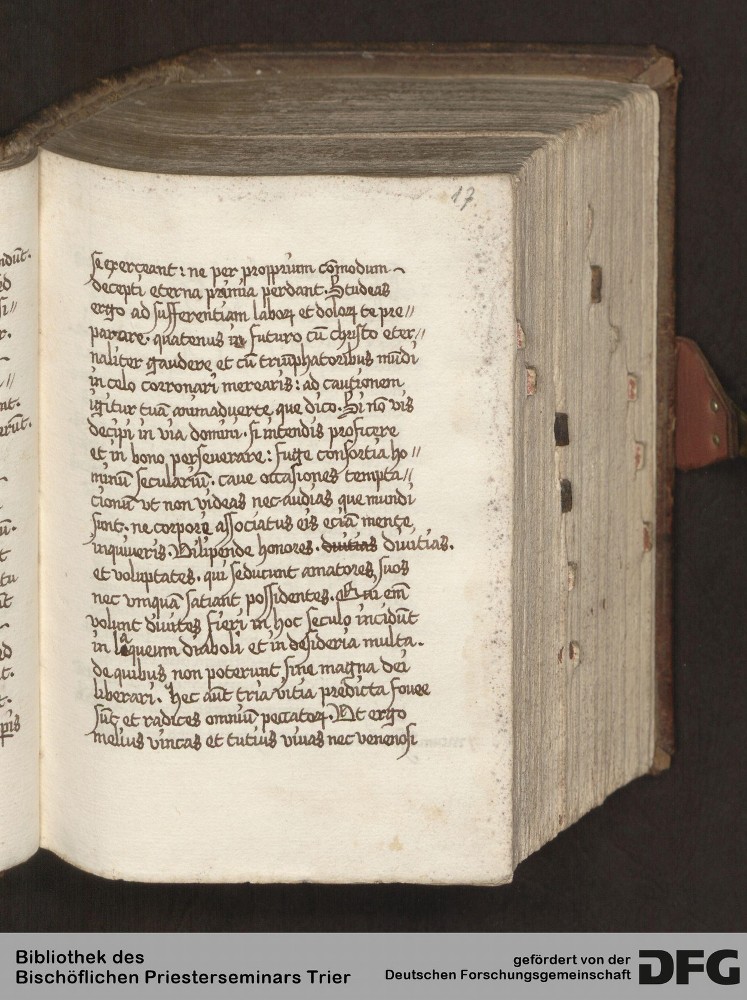 17.
se exerceant : ne per proprium cōmodum
decepti eterna pr̄mia perdant. Studeas
ergo ad sufferentiam laboꝝ et doloꝝ te pre//
parare. quatenus in futuro cū christo eter//
naliter gaudere et cū triūphatoribus mūdi
in celo corronari merearis : ad cautionem
igitur tuā animadverte que dico. Si nō vis
decipi in via domini. si intendis proficere
et in bono perseverare : fuge consortia ho//
minū seculariū. cave occasiones tempta//
cionū ut non videas nec audias que mundi
sunt. ne corpore associatus eis eciā mente
inquineris. Vilipende honores. divitias divitias.
et voluptates. qui seducunt amatores suos
nec vmquā satiant possidentes. Qui em̄
volunt divites fieri in hoc seculo incidūt
in laqueum diaboli et in desideria multa.
de quibus non poterunt sine magna dei
liberari. hec aūt tria vitia predicta fovee
sūt et radices omniū peccatoꝝ. Ut ergo
melius vincas et tutius vivas nec venenosi
Bibliothek des
Bischöflichen Priesterseminars Trier
gefördert von der
Deutschen Forschungsgemeinschaft
DFG